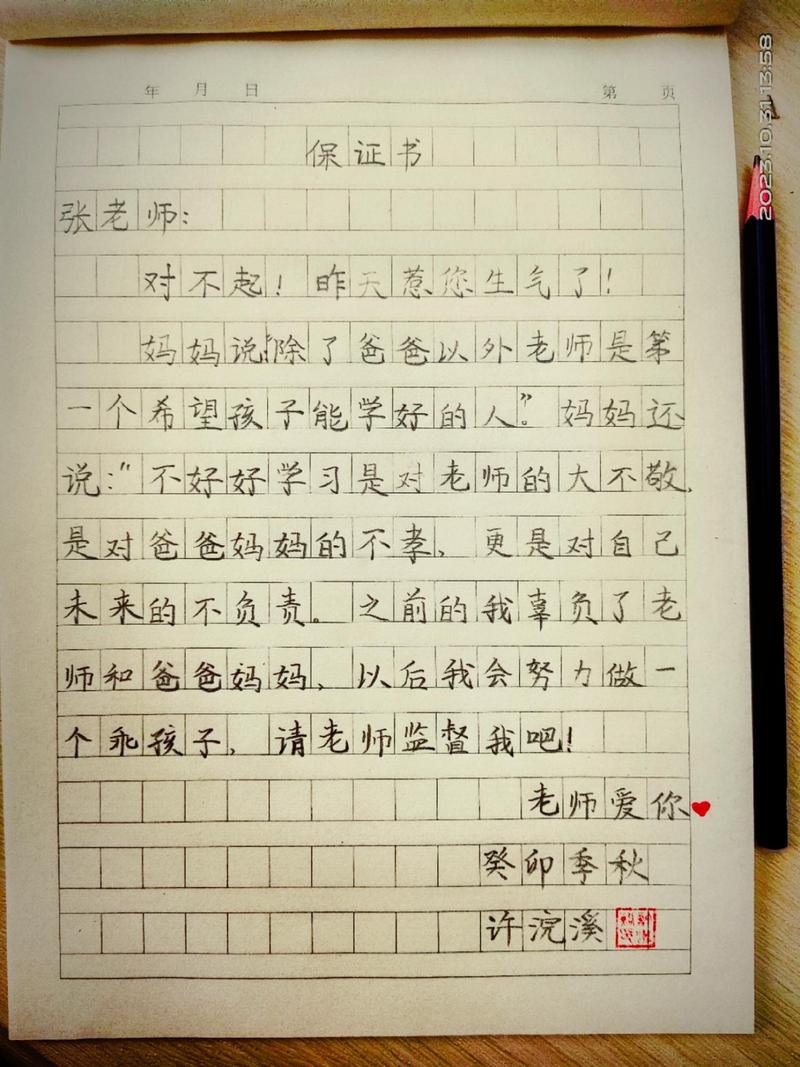 年 月 日 第 页
保证书
张老师:
对不起! 昨天惹您生气了!
妈妈说"除了爸爸以外老师是第
一个希望孩子能学好的人”。妈妈还
说:"不好好学习是对老师的大不敬,
是对爸爸妈妈的不孝、更是对自己
未来的不负责。之前的我辜负了老
师和爸爸妈妈、以后我会努力做一
个乖孩子, 请老师监督我吧!
老师爱你
癸卯季秋
许浣溪
2023.10.31 13:58